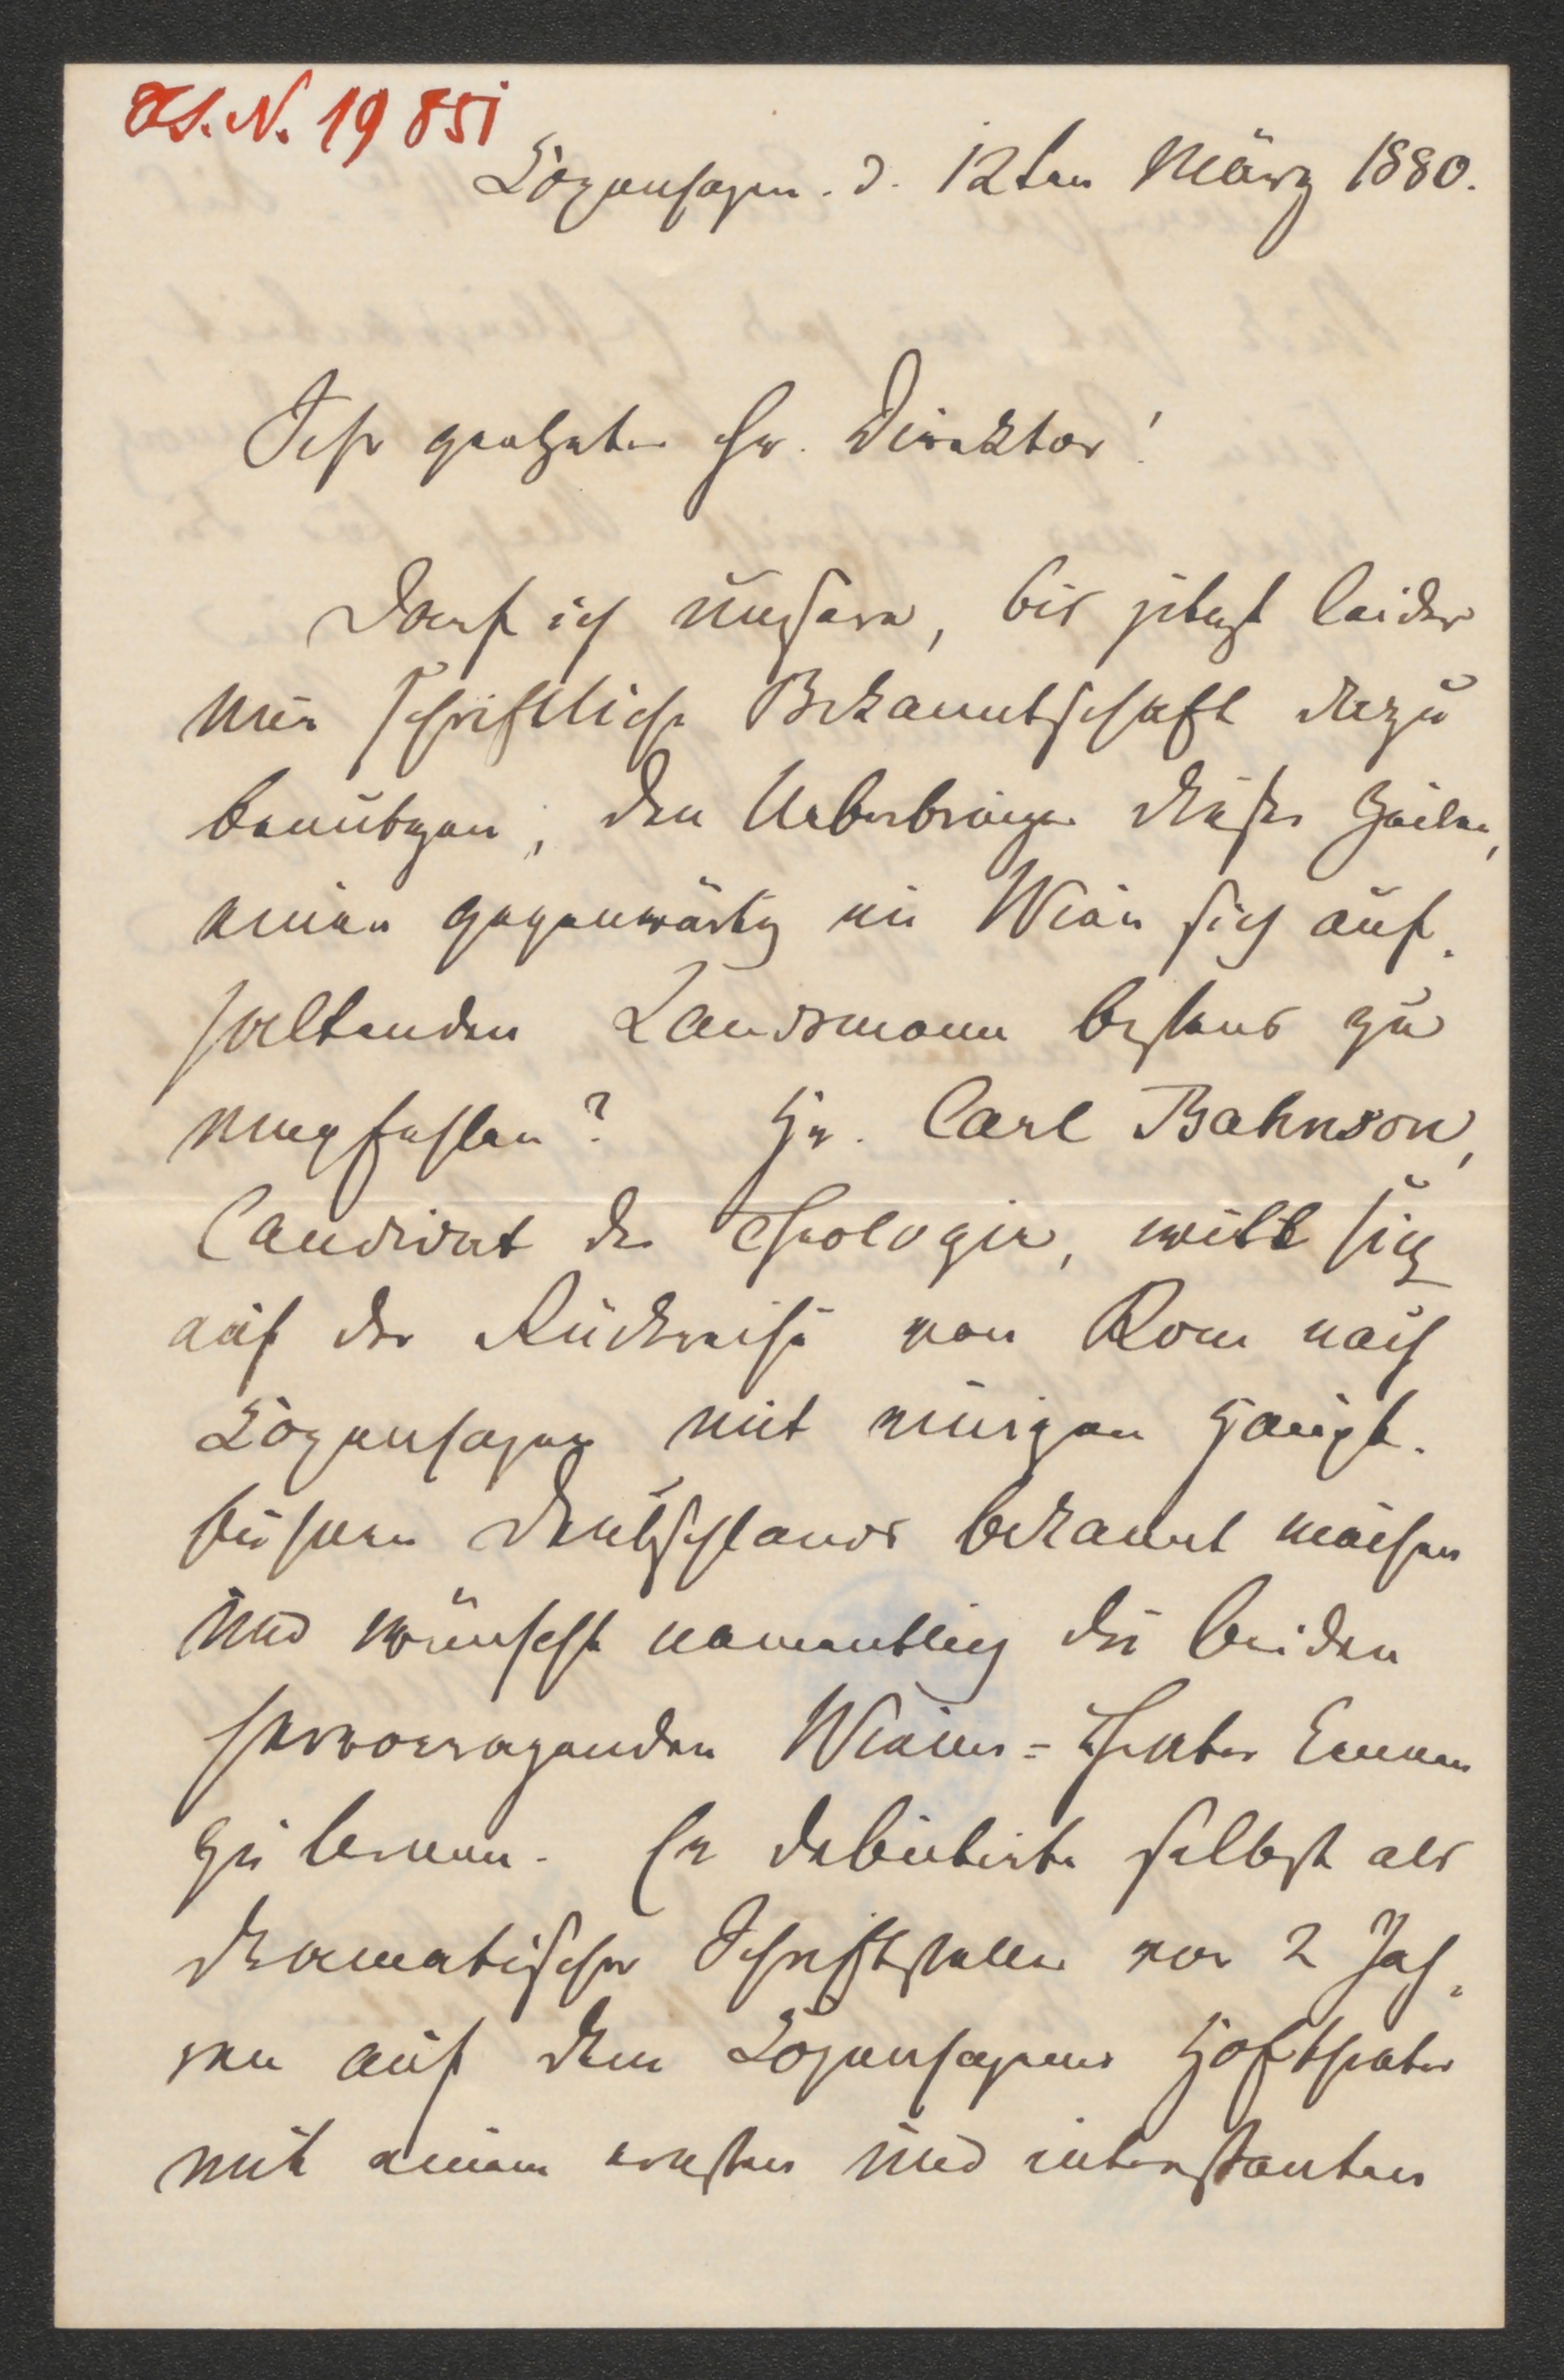 Hs. N. 19 851
Kopenhagen. d. 12ten März 1880.
Sehr geehrter Hr. Direktor!
Darf ich unsere, bis jetzt leider
nur schriftliche Bekanntschaft dazu
benutzen, den Ueberbringer dieser Zeilen,
einen gegenwärtig in Wien sich auf-
haltenden Landsmann bestens zu
empfehlen? Hr. Carl Bahnson,
Candidat der Theologie, will sich
auf der Rückreise von Rom nach
Kopenhagen mit einigen Haupt-
bühnen Deutschlands bekannt machen
und wünscht namentlich die beiden
hervorragenden Wiener-Theater kennen
zu lernen. Er debütirte selbst als
dramatischer Schriftsteller vor 2 Jah-
ren auf dem Kopenhagener Hoftheater
mit einem ernsten und interessanten